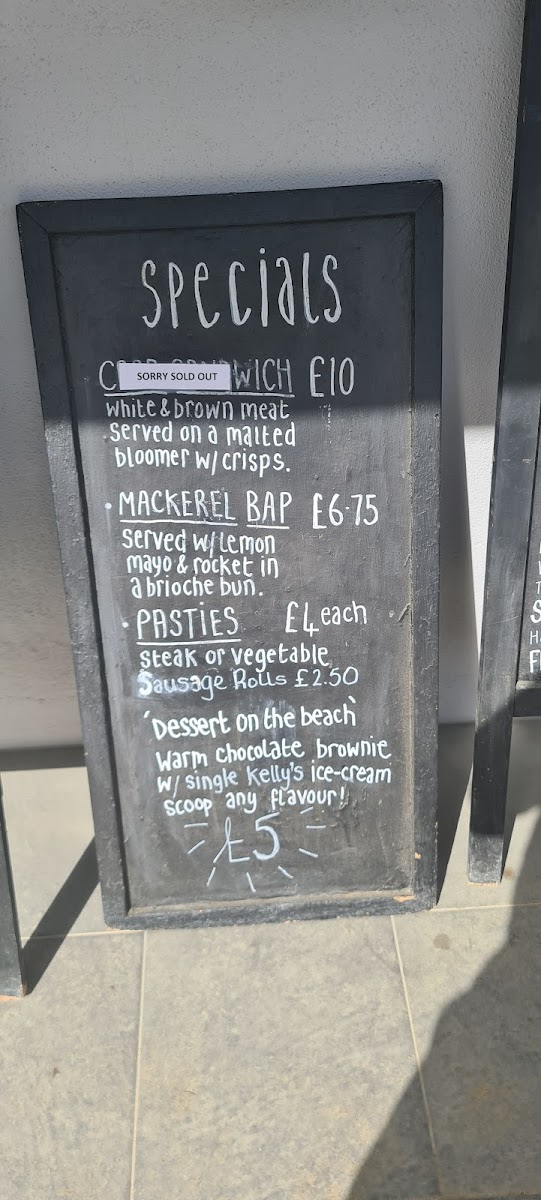 specials
SORRY SOLD OUT
SANDWICH £10
white & brown meat
served on a malted
bloomer w/ crisps.
· MACKEREL BAP £6·75
served w/ lemon
mayo & rocket in
a brioche bun.
· PASTiES £4 each
steak or vegetable
Sausage Rolls £2.50
'Dessert on the beach'
Warm chocolate brownie
w/ single Kelly's ice-cream
scoop any flavour!
£5